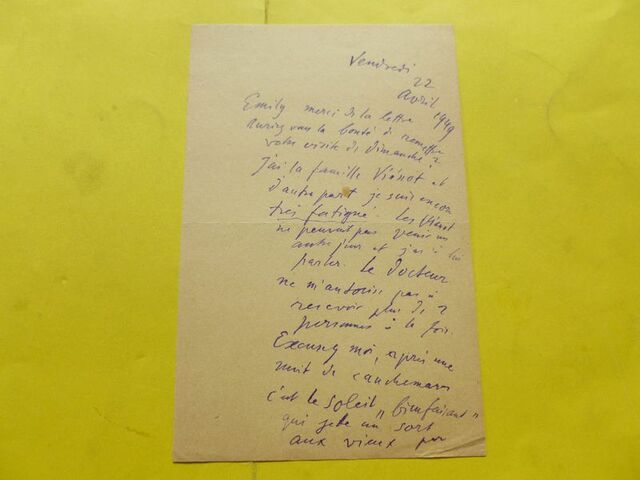 Vendredi
22
Avril 1949
Emily merci de la lettre
Auriez vous la bonté de remettre
votre visite de dimanche ?
J'ai la famille Viénot et
d'autre part je suis encore
très fatigué. Les Viénot
ne peuvent pas venir un
autre jour et j'ai à lui
parler. Le Docteur
ne m'autorise pas à
recevoir plus de 2
personnes à la fois.
Excusez moi, après une
nuit de cauchemars
c'est le soleil "bienfaisant"
qui jette un sort
aux vieux par